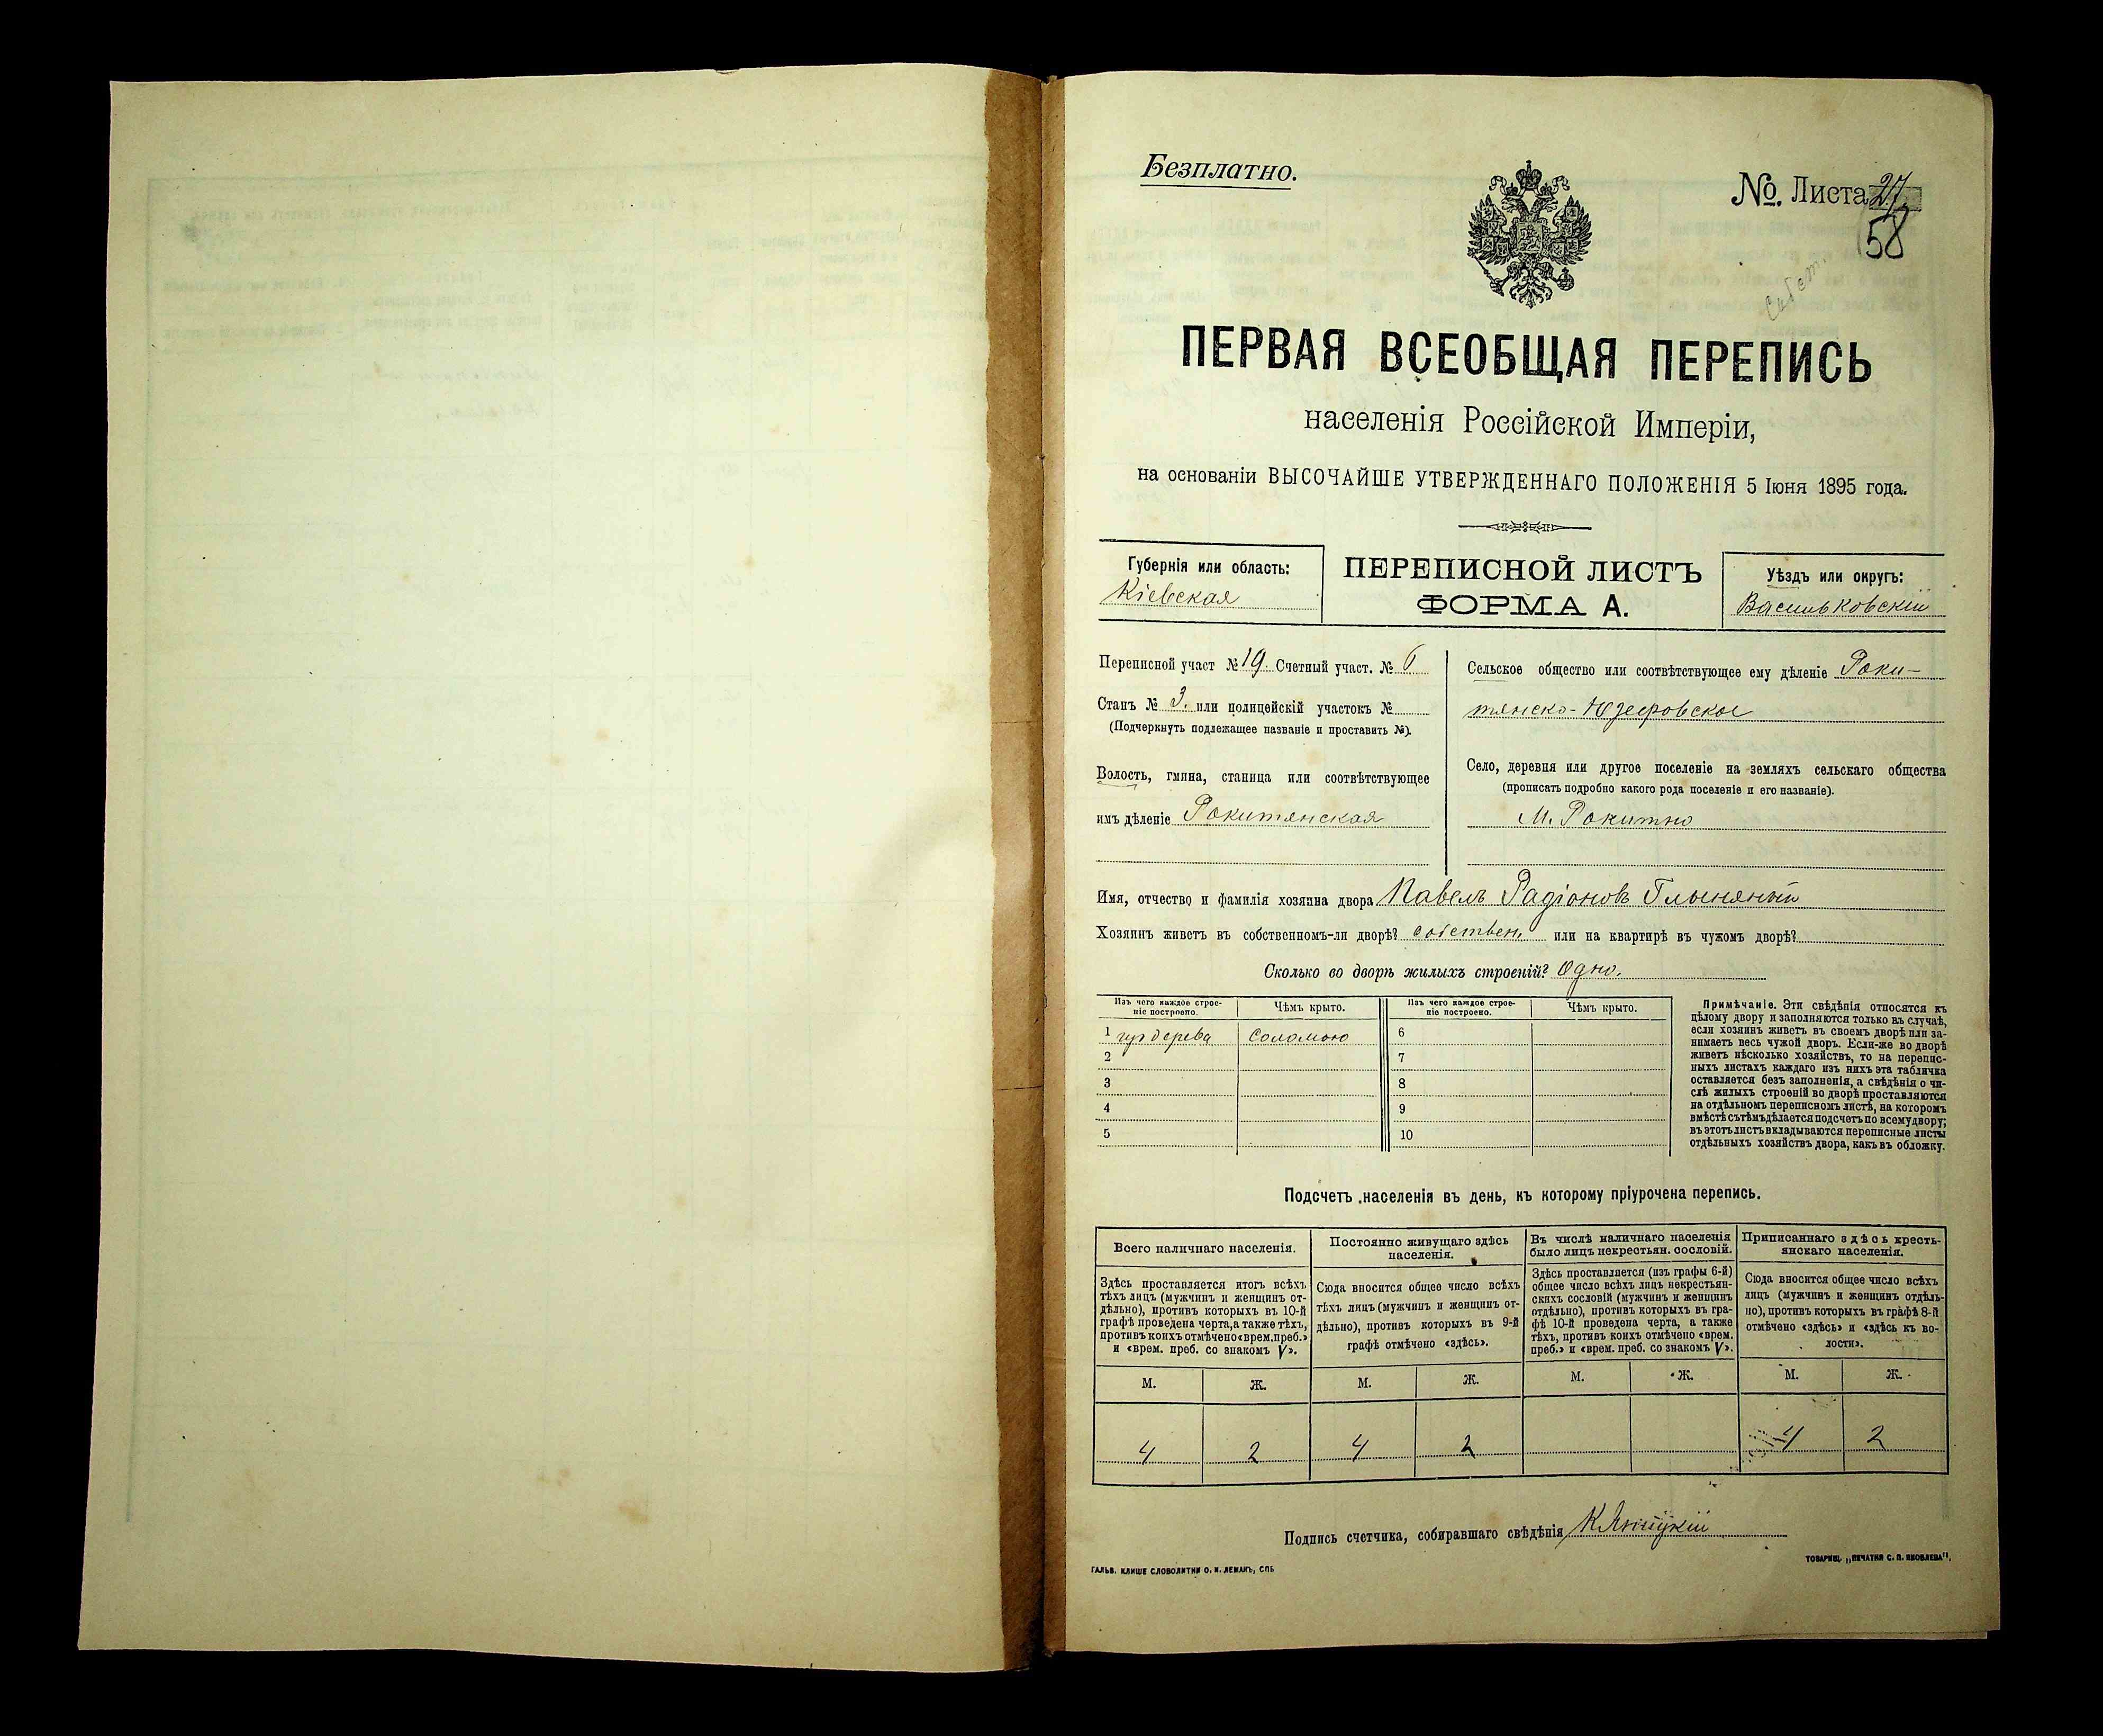 Безплатно.
№. Листа 27
58
ПЕРВАЯ ВСЕОБЩАЯ ПЕРЕПИСЬ
населенія Россійской Имперіи,
на основаніи ВЫСОЧАЙШЕ УТВЕРЖДЕННАГО ПОЛОЖЕНІЯ 5 Іюня 1895 года.
Губернія или область:
Кіевская
ПЕРЕПИСНОЙ ЛИСТЪ
ФОРМА А.
Уѣздъ или округъ:
Васильковскій
Переписной участ № 19. Счетный участ. № 6
Станъ № 3. или полицейскій участокъ №
(Подчеркнуть подлежащее названіе и проставить №).
Волость, гмина, станица или соотвѣтствующее
имъ дѣленіе Рокитянская
Сельское общество или соотвѣтствующее ему дѣленіе Роки-
тянско-Юзефовское
Село, деревня или другое поселеніе на земляхъ сельскаго общества
(прописать подробно какого рода поселеніе и его названіе).
М. Рокитно
Имя, отчество и фамилія хозяина двора Павелъ Радіоновъ Глыняный
Хозяинъ живетъ въ собственномъ-ли дворѣ? собствен. или на квартирѣ въ чужомъ дворѣ?
Сколько во дворѣ жилыхъ строеній? Одно.
Изъ чего каждое строе-
ніе построено.
Чѣмъ крыто.
Изъ чего каждое строе-
ніе построено.
Чѣмъ крыто.
1 изъ дерева Соломою 6
2 7
3 8
4 9
5 10
Примѣчаніе. Эти свѣдѣнія относятся къ
цѣлому двору и заполняются только въ случаѣ,
если хозяинъ живетъ въ своемъ дворѣ или за-
нимаетъ весь чужой дворъ. Если-же во дворѣ
живетъ нѣсколько хозяйствъ, то на перепис-
ныхъ листахъ каждаго изъ нихъ эта табличка
оставляется безъ заполненія, а свѣдѣнія о чи-
слѣ жилыхъ строеній во дворѣ проставляются
на отдѣльномъ переписномъ листѣ, на которомъ
вмѣстѣ съ тѣмъ дѣлается подсчетъ по всему двору;
въ этотъ листъ вкладываются переписные листы
отдѣльныхъ хозяйствъ двора, какъ въ обложку.
Подсчетъ населенія въ день, къ которому пріурочена перепись.
Всего наличнаго населенія.
Здѣсь проставляется итогъ всѣхъ
тѣхъ лицъ (мужчинъ и женщинъ от-
дѣльно), противъ которыхъ въ 10-й
графѣ проведена черта, а также тѣхъ,
противъ коихъ отмѣчено «врем. преб.»
и «врем. преб. со знакомъ V».
Постоянно живущаго здѣсь
населенія.
Сюда вносится общее число всѣхъ
тѣхъ лицъ (мужчинъ и женщинъ от-
дѣльно), противъ которыхъ въ 9-й
графѣ отмѣчено «здѣсь».
Въ числѣ наличнаго населенія
было лицъ некрестьян. сословій.
Здѣсь проставляется (изъ графы 6-й)
общее число всѣхъ лицъ некрестьян-
скихъ сословій (мужчинъ и женщинъ
отдѣльно), противъ которыхъ въ гра-
фѣ 10-й проведена черта, а также
тѣхъ, противъ коихъ отмѣчено «врем.
преб.» и «врем. преб. со знакомъ V».
Приписаннаго здѣсь кресть-
янскаго населенія.
Сюда вносится общее число всѣхъ
лицъ (мужчинъ и женщинъ отдѣль-
но), противъ которыхъ въ графѣ 8-й
отмѣчено «здѣсь» и «здѣсь къ во-
лости».
М. Ж. М. Ж. М. Ж. М. Ж.
4 2 4 2 4 2
Подпись счетчика, собиравшаго свѣдѣнія
ГАЛЬВ. КЛИШЕ СЛОВОЛИТНИ О. И. ЛЕМАНЪ, СПБ
ТОВАРИЩ. „ПЕЧАТНЯ С. П. ЯКОВЛЕВА".